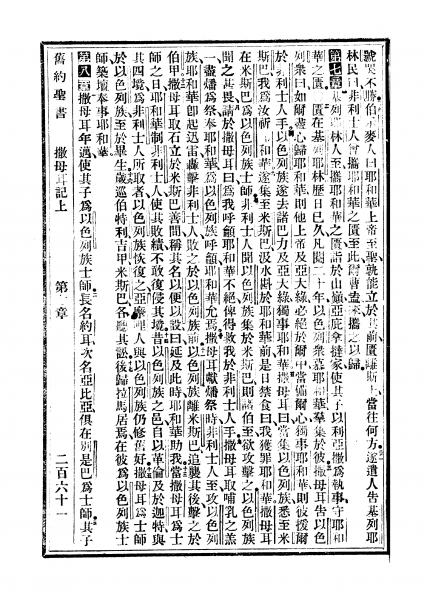 號哭不勝伯示麥人曰耶和華上帝至聖孰能立於其前匱離斯土當往何方遂遣人告基列耶
林民曰非利士人曾攜耶和華之匱至此爾曹盍來攜之以歸
第七章 基列耶林人至攜耶和華之匱詣於山巔亞庇拿撻家使其子以利亞撒爲執事守耶和
華之匱 匱在基列耶林歷日已久凡閱二十年以色列衆慕耶和華羣集於彼撒母耳告以色
列衆曰如爾盡心歸耶和華則他上帝及亞大綠必絕於爾中當備爾心獨事耶和華則彼援爾
於非利士人手以色列族遂去諸巴力及亞大綠獨事耶和華撒母耳曰當集以色列族悉至米
斯巴我爲汝祈耶和華遂集至米斯巴汲水斟於耶和華前是日禁食曰我獲罪耶和華撒母耳
在米斯巴爲以色列族士師非利士人聞以色列族集於米斯巴則諸伯至欲攻擊之以色列族
聞之甚畏請於撒母耳曰爲我呼籲耶和華不絕俾得救我於非利士人手撒母耳取哺乳之羔
一盡燔爲祭奉耶和華爲以色列族呼籲耶和華允焉撒母耳獻燔祭時非利士人至攻以色列
族耶和華卽起迅雷轟擊非利士人敗之於以色列族前以色列族離米斯巴追襲其後擊之於
伯甲撒母耳取石立於米斯巴善間稱其名以便以設曰延及此時耶和華助我當撒母耳爲士
師之日耶和華制非利士人使其敗績不敢復侵其境昔以色列族之邑自以革倫及於迦特與
其四境爲非利士人所取者以色列族恢復之亞摩哩人與以色列族仍修舊好撒母耳爲士師
於以色列族至於畢生歲巡伯特利吉甲米斯巴各聽其訟後歸拉馬居焉在彼爲以色列族士
師築壇奉事耶和華
第八章 撒母耳年邁使其子爲以色列族士師長名約耳次名亞比亞俱在別是巴爲士師其子
舊約聖書 撒母耳記上 第 章 二百六十一